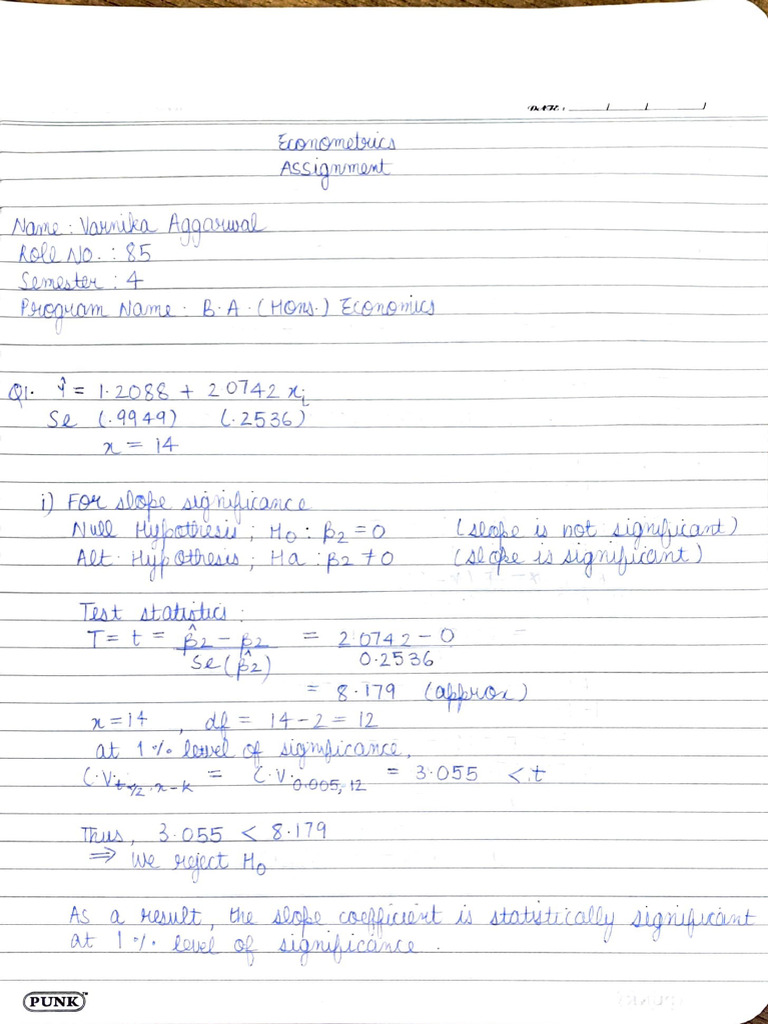 DATE: / /
Econometrics
Assignment
Name : Varnika Aggarwal
Roll No. : 85
Semester : 4
Program Name : B.A. (Hons.) Economics
Q1. Ŷ = 1.2088 + 2.0742 xi
Se (.9949) (.2536)
n = 14
i) For slope significance
Null Hypothesis ; H0 : β2 = 0 (slope is not significant)
Alt. Hypothesis ; Ha : β2 ≠ 0 (slope is significant)
Test statistics :
T = t = (β̂2 - β2) / Se(β̂2) = (2.0742 - 0) / 0.2536
= 8.179 (approx)
n = 14 , df = 14 - 2 = 12
at 1% level of significance,
C.V. t α/2, n-k = C.V. 0.005, 12 = 3.055 < t
Thus, 3.055 < 8.179
⇒ We reject H0
As a result, the slope coefficient is statistically significant
at 1% level of significance.
PUNK™